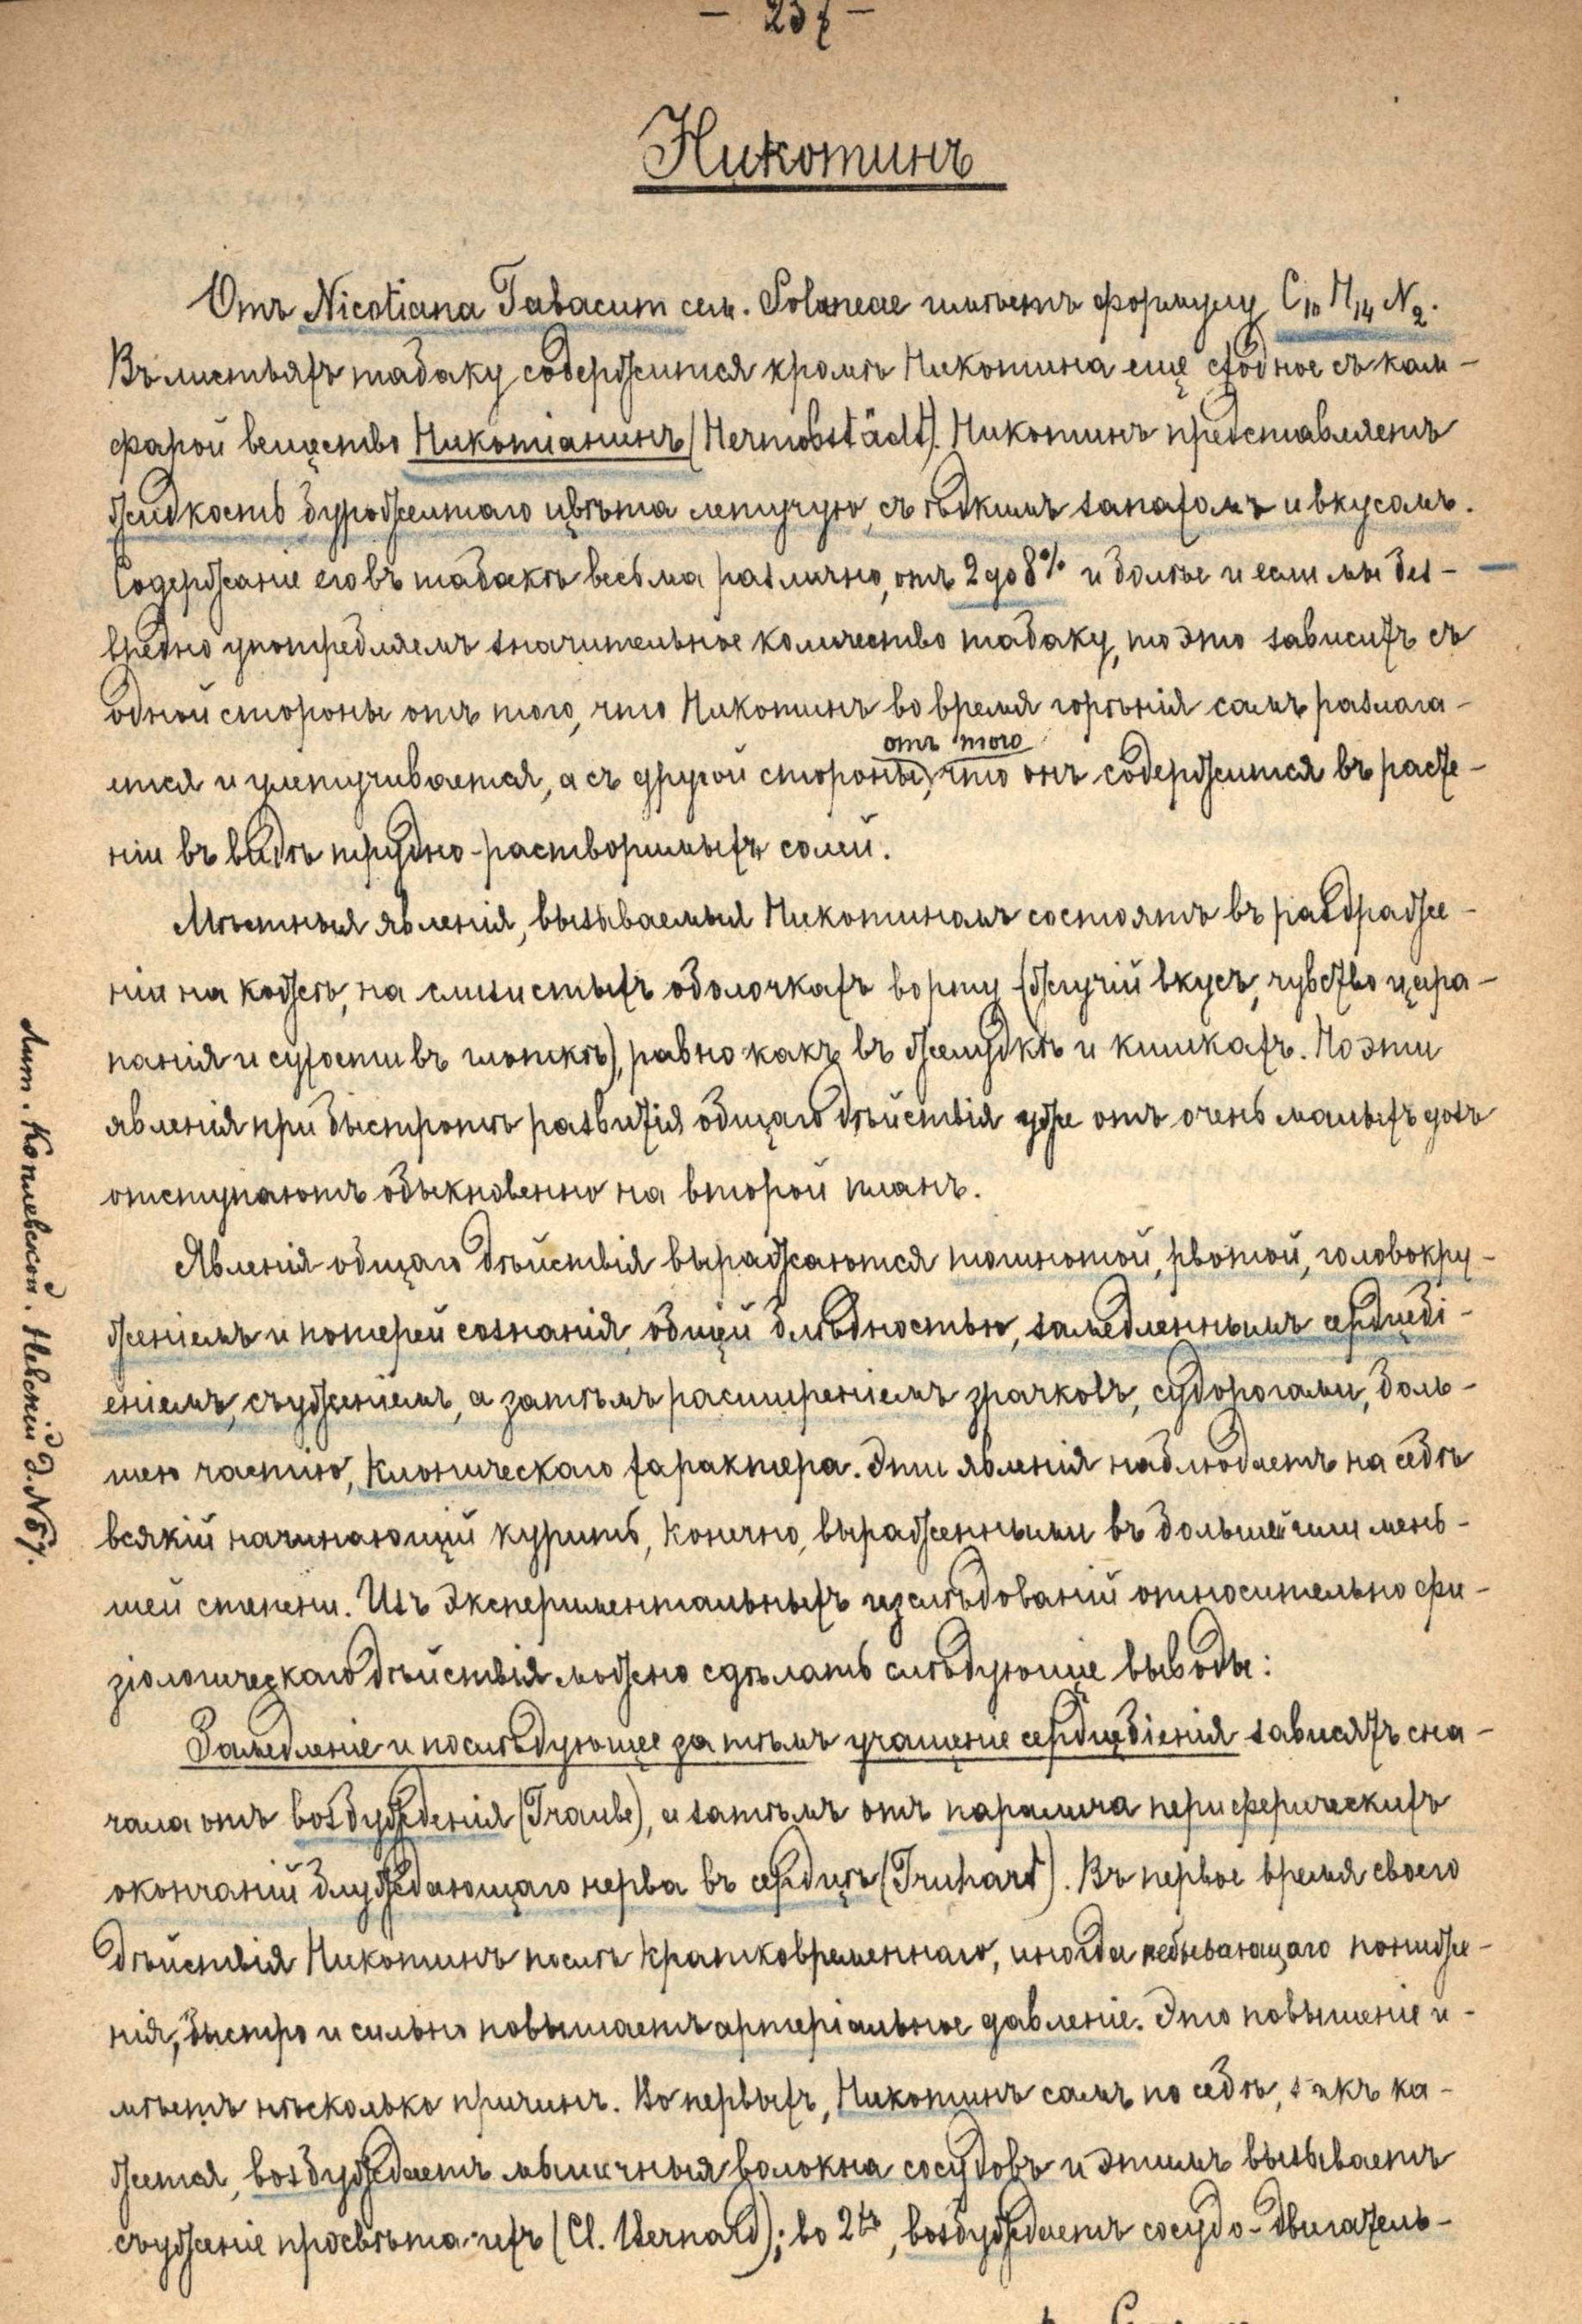 — 237 —
Никотинъ
Отъ Nicotiana Tabacum сем. Solaneae имѣетъ формулу C10 H14 N2.
Въ листьяхъ табаку содержится кромѣ Никотина еще сходное съ кам-
фарой вещество Никотіанинъ (Hermbstädt). Никотинъ представляетъ
жидкость буро-желтаго цвѣта летучую, съ ѣдкимъ запахомъ и вкусомъ.
Содержаніе его въ табакѣ весьма различно, отъ 2 до 8% и болѣе и если мы без-
вредно употребляемъ значительное количество табаку, то это зависитъ съ
одной стороны отъ того, что Никотинъ во время горѣнія самъ разлага-
ется и улетучивается, а съ другой стороны, отъ того что онъ содержится въ расте-
ніи въ видѣ трудно-растворимыхъ солей.
Мѣстныя явленія, вызываемыя Никотиномъ состоятъ въ раздраже-
ніи на кожѣ, на слизистыхъ оболочкахъ во рту (жгучій вкусъ, чувство цара-
панія и сухости въ глоткѣ), равно какъ въ желудкѣ и кишкахъ. Но эти
явленія при быстротѣ развитія общаго дѣйствія уже отъ очень малыхъ дозъ
отступаютъ обыкновенно на второй планъ.
Явленія общаго дѣйствія выражаются тошнотой, рвотой, головокру-
женіемъ и потерей сознанія, общей блѣдностью, замедленнымъ сердцебі-
еніемъ, съуженіемъ, а затѣмъ расширеніемъ зрачковъ, судорогами, боль-
шею частію, клоническаго характера. Эти явленія наблюдаетъ на себѣ
всякій начинающій курить, конечно, выраженными въ большей или мень-
шей степени. Изъ экспериментальныхъ изслѣдованій относительно фи-
зіологическаго дѣйствія можно сдѣлать слѣдующіе выводы:
Замедленіе и послѣдующее за тѣмъ учащеніе сердцебіенія зависятъ сна-
чала отъ возбужденія (Traube), а затѣмъ отъ паралича периферическихъ
окончаній блуждающаго нерва въ сердцѣ (Truhart). Въ первое время своего
дѣйствія Никотинъ послѣ кратковременнаго, иногда небывающаго пониже-
нія, быстро и сильно повышаетъ артеріальное давленіе. Это повышеніе и-
мѣетъ нѣсколько причинъ. Во первыхъ, Никотинъ самъ по себѣ, такъ ка-
жется, возбуждаетъ мышечныя волокна сосудовъ и этимъ вызываетъ
съуженіе просвѣта ихъ (Cl. Bernard); во 2хъ, возбуждаетъ сосудо-двигатель-
Лит. Коплевской. Невскій д. №67.